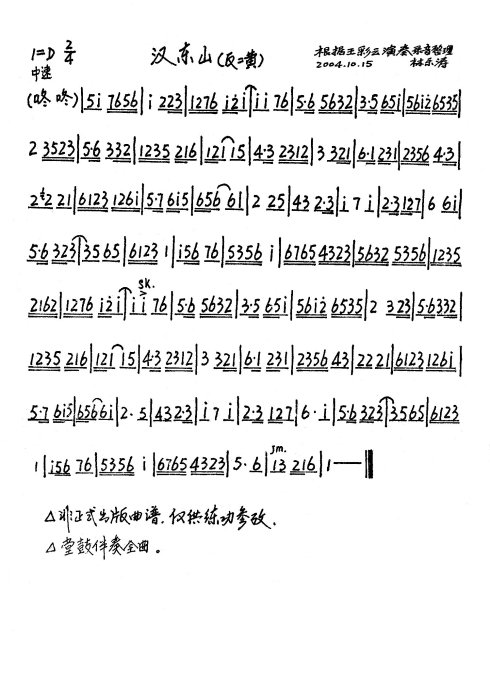 1=D 2/4 汉东山(反二黄) 根据王彩云演奏录音整理
中速 2004.10.15 林乐涛
(咚 咚)|5i 7656|i 223|1276 i2i|i i 76|5·6 5632|3·5 65i|56i2 6535|
2 3523|5·6 332|1235 216|121 15|4·3 2312|3 321|6·1 231|2356 4·3|
2 2 21|6123 126i|5·7 6i5|656 61|2 25|43 2·3|i 7 i|2·3 127|6 6i|
5·6 323|35 65|6123 1|i56 76|5356 i|6765 4323|5632 5356|1235
2162|1276 i2i|i i 76|5·6 5632|3·5 65i|56i2 6535|2 323|5·6332|
sk.
1235 216|121 15|4·3 2312|3 321|6·1 231|2356 43|22 21|6123 126i|
5·7 6i5|656 6i|2· 5|43 2·3|i 7 i|2·3 127|6· i|5·6 323|35 65|6123
1|i56 76|5356 i|6765 4323|5· 6|13 216|1——‖
△非正式出版曲谱,仅供练功参考.
△堂鼓伴奏全曲。